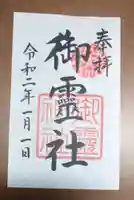 奉拝
御靈社
令和二年一月一日